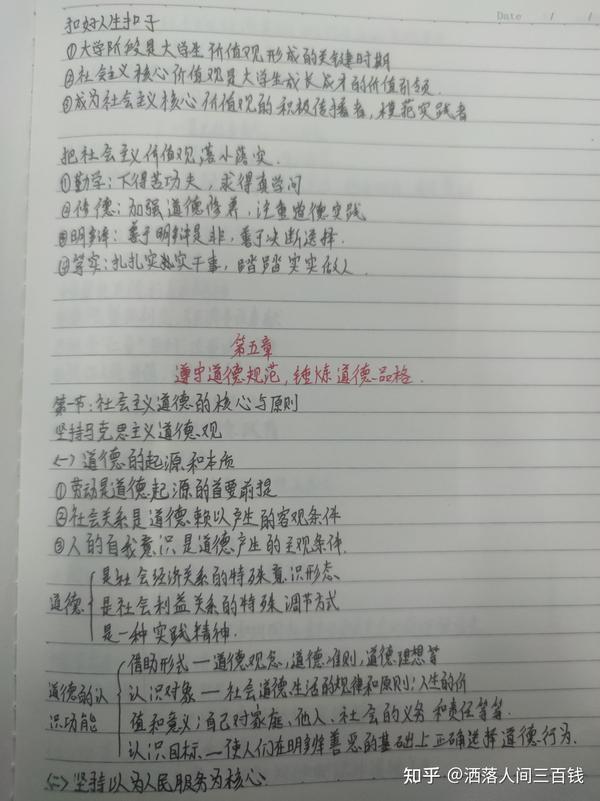 Date / /
扣好人生扣子
①大学阶段是大学生价值观形成的关键时期
②社会主义核心价值观是大学生成长成才的价值引领
③成为社会主义核心价值观的积极传播者，模范实践者
把社会主义价值观落小落实.
①勤学：下得苦功夫，求得真学问
②修德：加强道德修养，注重道德实践
③明辨：善于明辩是非，善于决断选择.
④笃实：扎扎实扎实干事，踏踏实实做人.
第五章
遵守道德规范，锤炼道德品格.
第一节：社会主义道德的核心与原则
坚持马克思主义道德观
(一) 道德的起源和本质
①劳动是道德起源的首要前提
②社会关系是道德赖以产生的客观条件
③人的自我意识是道德产生的主观条件.
是社会经济关系的特殊意识形态
道德 是社会利益关系的特殊调节方式
是一种实践精神.
借助形式—道德观念，道德准则，道德理想等
道德的认 认识对象—社会道德生活的规律和原则；人生的价
识功能 值和意义；自己对家庭、他人、社会的义务和责任等等.
认识目标—使人们在明辨善恶的基础上正确选择道德行为.
(二) 坚持以为人民服务为核心
知乎 @洒落人间三百钱